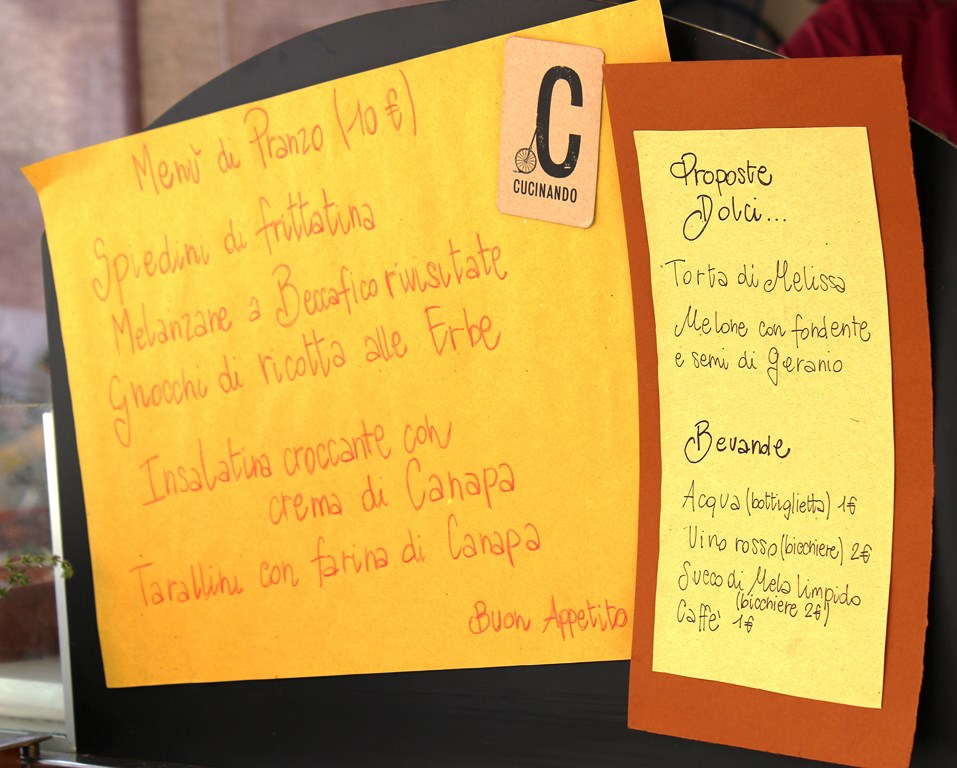 Menù di Pranzo (10 €)
Spiedini di frittatina
Melanzane a Beccafico rivisitate
Gnocchi di ricotta alle Erbe
Insalatina croccante con
crema di Canapa
Tarallini con farina di Canapa
Buon Appetito
C
CUCINANDO
Proposte
Dolci...
Torta di Melissa
Melone con fondente
e semi di Geranio
Bevande
Acqua (bottiglietta) 1€
Vino rosso (bicchiere) 2€
Succo di Mela limpido
(bicchiere 2€)
Caffe' 1€